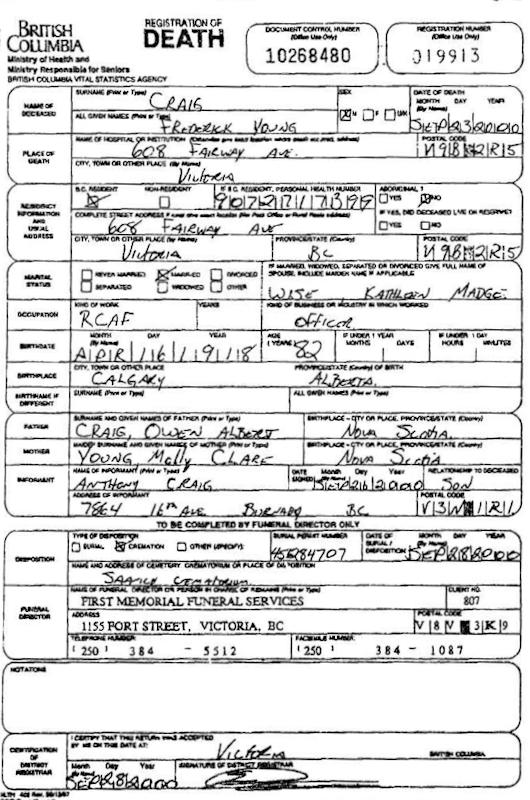 BRITISH COLUMBIA
REGISTRATION OF DEATH
Ministry of Health and
Ministry Responsible for Seniors
BRITISH COLUMBIA VITAL STATISTICS AGENCY
DOCUMENT CONTROL NUMBER
(Office Use Only)
10268480
REGISTRATION NUMBER
(Office Use Only)
019913
NAME OF DECEASED
SURNAME (Print or Type)
CRAIG
ALL GIVEN NAMES (Print or Type)
FREDERICK YOUNG
SEX
M F UNK
DATE OF DEATH
MONTH DAY YEAR
SEP 23 2000
PLACE OF DEATH
NAME OF HOSPITAL OR INSTITUTION
608 FAIRWAY AVE.
POSTAL CODE
CITY, TOWN OR OTHER PLACE (By Name)
VICTORIA
RESIDENCY INFORMATION AND USUAL ADDRESS
B.C. RESIDENT
NON-RESIDENT
IF B.C. RESIDENT, PERSONAL HEALTH NUMBER
ABORIGINAL?
YES NO
COMPLETE STREET ADDRESS
608 FAIRWAY AVE
IF YES, DID DECEASED LIVE ON RESERVE?
YES NO
CITY, TOWN OR OTHER PLACE (By Name)
VICTORIA
PROVINCE/STATE (Country)
BC
POSTAL CODE
MARITAL STATUS
NEVER MARRIED MARRIED DIVORCED
SEPARATED WIDOWED OTHER
IF MARRIED, WIDOWED, SEPARATED OR DIVORCED GIVE FULL NAME OF SPOUSE, INCLUDE MAIDEN NAME IF APPLICABLE
WISE KATHLEEN MADGE
OCCUPATION
KIND OF WORK YEARS
RCAF
KIND OF BUSINESS OR INDUSTRY IN WHICH WORKED
OFFICER
BIRTHDATE
MONTH DAY YEAR
APR 16 1918
AGE (YEARS)
82
IF UNDER 1 YEAR
MONTHS DAYS
IF UNDER 1 DAY
HOURS MINUTES
BIRTHPLACE
CITY, TOWN OR OTHER PLACE
CALGARY
PROVINCE/STATE (Country) OF BIRTH
ALBERTA.
BIRTHNAME IF DIFFERENT
SURNAME (Print or Type)
ALL GIVEN NAMES (Print or Type)
FATHER
SURNAME AND GIVEN NAMES OF FATHER (Print or Type)
CRAIG, OWEN ALBERT
BIRTHPLACE - CITY OR PLACE, PROVINCE/STATE (Country)
NOVA SCOTIA
MOTHER
MAIDEN SURNAME AND GIVEN NAMES OF MOTHER (Print or Type)
YOUNG Molly CLARE
BIRTHPLACE - CITY OR PLACE, PROVINCE/STATE (Country)
NOVA SCOTIA
INFORMANT
NAME OF INFORMANT (Print or Type)
ANTHONY CRAIG
DATE SIGNED (By Name)
Month Day Year
SEP 26 2000
RELATIONSHIP TO DECEASED
SON
ADDRESS OF INFORMANT
7864 16th AVE BURNABY BC
POSTAL CODE
V3N 1R1
TO BE COMPLETED BY FUNERAL DIRECTOR ONLY
DISPOSITION
TYPE OF DISPOSITION
BURIAL CREMATION OTHER (SPECIFY)
BURIAL PERMIT NUMBER
DATE OF BURIAL / DISPOSITION
Month Day Year
SEP 28 2000
NAME AND ADDRESS OF CEMETERY, CREMATORIUM OR PLACE OF DISPOSITION
SAANICH CREMATORIUM
FUNERAL DIRECTOR
NAME OF FUNERAL DIRECTOR OR PERSON IN CHARGE OF REMAINS (Print or Type)
FIRST MEMORIAL FUNERAL SERVICES
CLIENT NO.
807
ADDRESS
1155 FORT STREET, VICTORIA, BC
POSTAL CODE
V8V 3K9
TELEPHONE NUMBER
(250) 384 - 5512
FACSIMILE NUMBER
(250) 384 - 1087
NOTATIONS
CERTIFICATION OF DISTRICT REGISTRAR
I CERTIFY THAT THIS RETURN WAS ACCEPTED BY ME ON THIS DATE AT:
VICTORIA
BRITISH COLUMBIA
Month Day Year
SEP 28 2000
SIGNATURE OF DISTRICT REGISTRAR